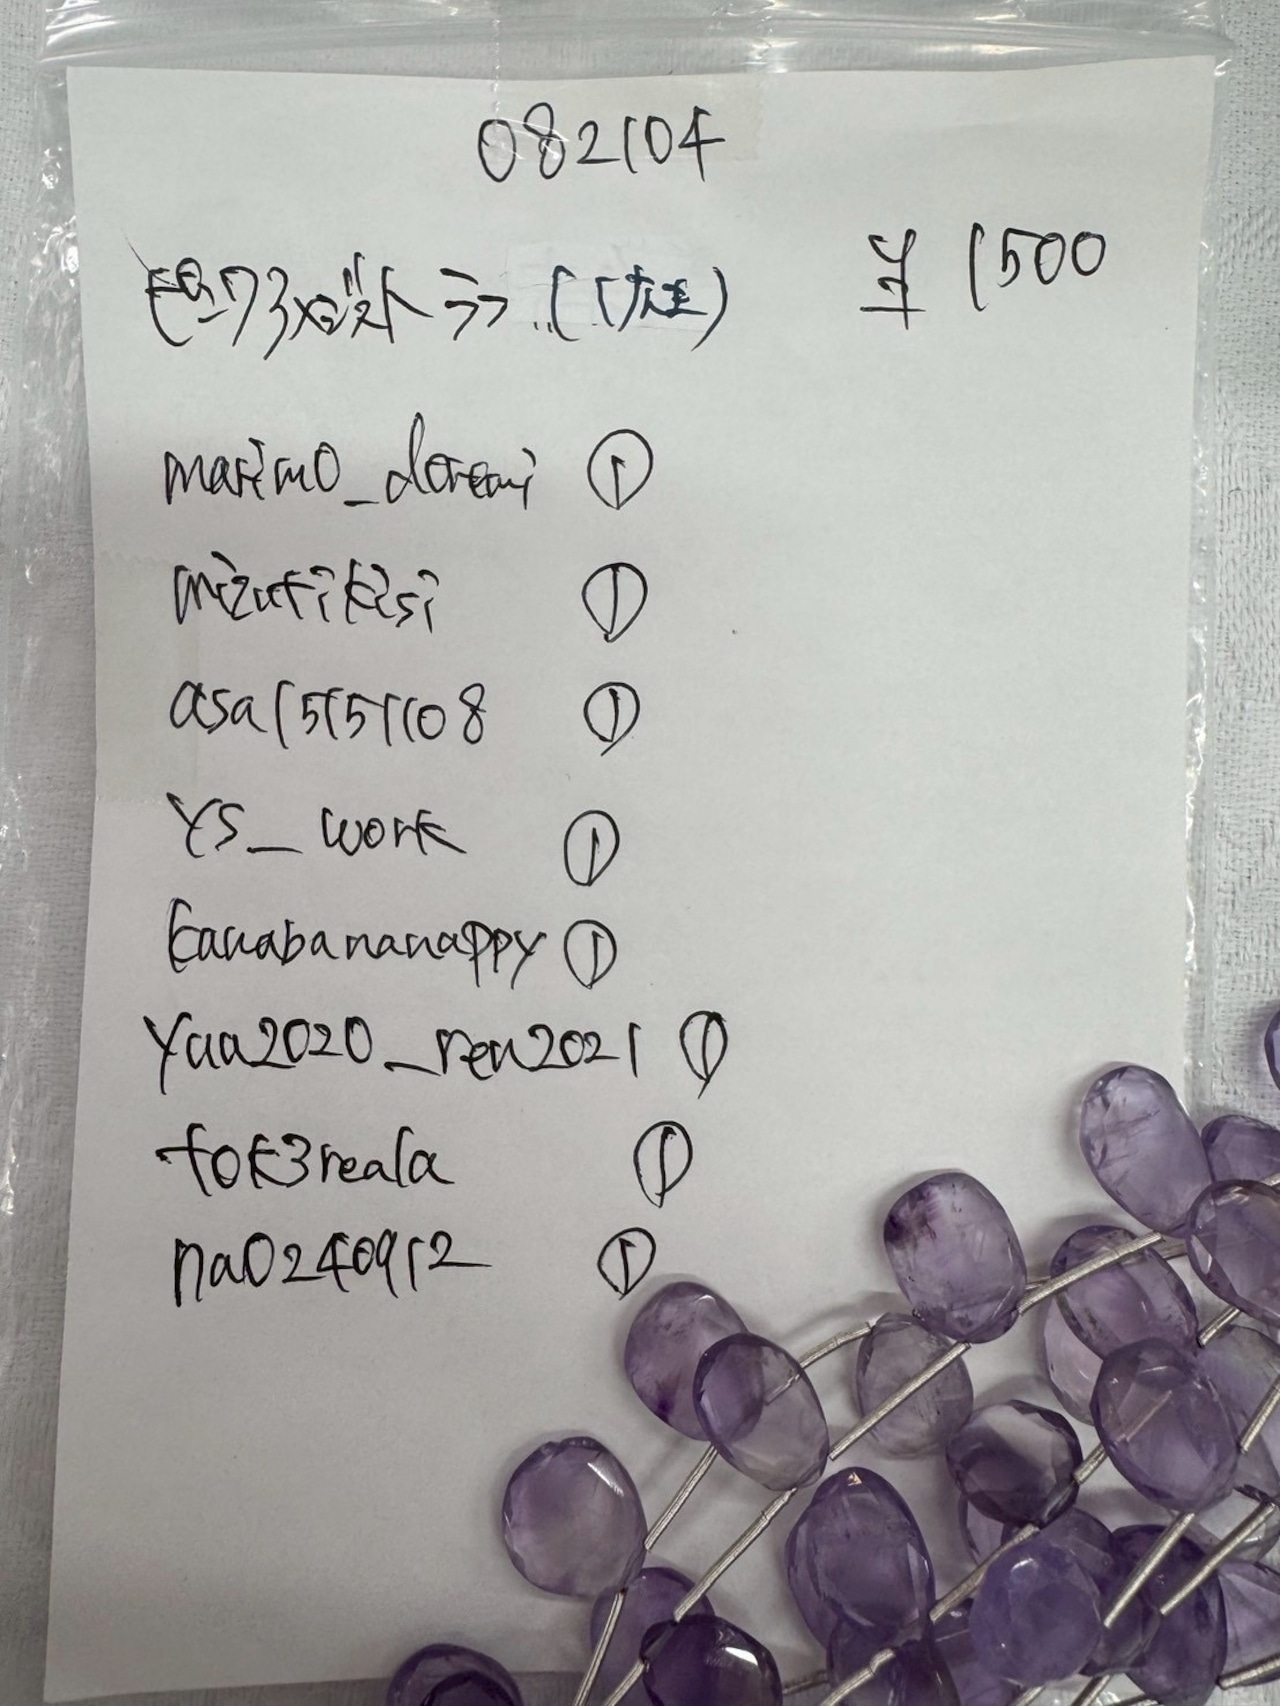 082104
¥ 1500
marimo_doremi ①
mizutikisi ①
asa15151108 ①
YS_work ①
kanabananappy ①
yaa2020_ren2021 ①
tok3reala ①
na0240912 ①